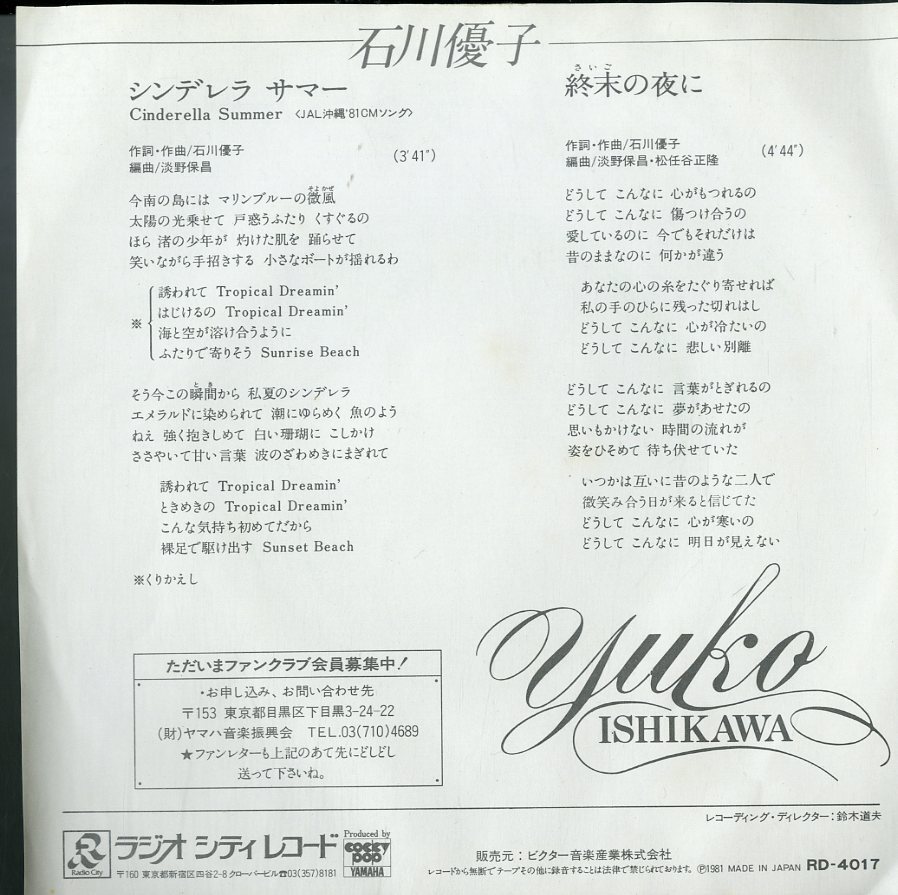 石川優子
シンデレラ サマー
Cinderella Summer 〈JAL沖縄'81CMソング〉
作詞・作曲/石川優子
編曲/淡野保昌
(3'41")
今南の島には マリンブルーの微風
そよかぜ
太陽の光乗せて 戸惑うふたり くすぐるの
ほら 渚の少年が 灼けた肌を 踊らせて
笑いながら手招きする 小さなボートが揺れるわ
※
誘われて Tropical Dreamin'
はじけるの Tropical Dreamin'
海と空が溶け合うように
ふたりで寄りそう Sunrise Beach
そう今この瞬間から 私夏のシンデレラ
とき
エメラルドに染められて 潮にゆらめく 魚のよう
ねえ 強く抱きしめて 白い珊瑚に こしかけ
ささやいて甘い言葉 波のざわめきにまぎれて
誘われて Tropical Dreamin'
ときめきの Tropical Dreamin'
こんな気持ち初めてだから
裸足で駆け出す Sunset Beach
※くりかえし
さいご
終末の夜に
作詞・作曲/石川優子
編曲/淡野保昌・松任谷正隆
(4'44")
どうして こんなに 心がもつれるの
どうして こんなに 傷つけ合うの
愛しているのに 今でもそれだけは
昔のままなのに 何かが違う
あなたの心の糸をたぐり寄せれば
私の手のひらに残った切れはし
どうして こんなに 心が冷たいの
どうして こんなに 悲しい別離
どうして こんなに 言葉がとぎれるの
どうして こんなに 夢があせたの
思いもかけない 時間の流れが
姿をひそめて 待ち伏せていた
いつかは互いに昔のような二人で
微笑み合う日が来ると信じてた
どうして こんなに 心が寒いの
どうして こんなに 明日が見えない
yuko
ISHIKAWA
ただいまファンクラブ会員募集中!
・お申し込み、お問い合わせ先
〒153 東京都目黒区下目黒3-24-22
(財)ヤマハ音楽振興会 TEL.03(710)4689
★ファンレターも上記のあて先にどしどし
送って下さいね。
レコーディング・ディレクター:鈴木道夫
R
Radio City
ラジオ シティ レコード
Produced by
COCKY
POP
YAMAHA
〒160 東京都新宿区四谷2-8 クローバービル☎03(357)8181
販売元:ビクター音楽産業株式会社
レコードから無断でテープその他に録音することは法律で禁じられております。 Ⓟ1981 MADE IN JAPAN RD-4017